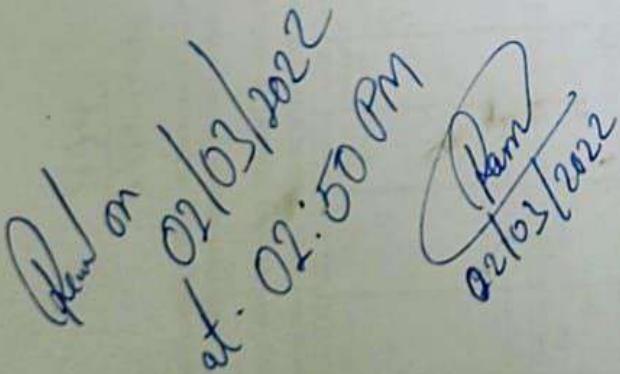 Recd on
02/03/2022
at. 02:50 PM
Ram
02/03/2022